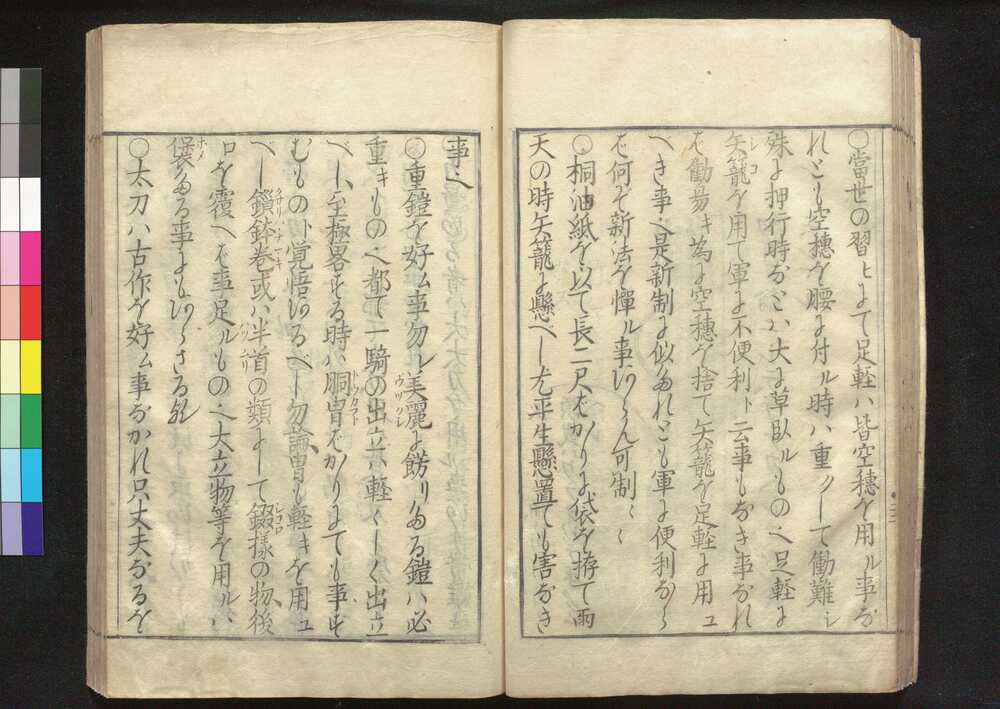 ○當世の習ヒよて足軽ハ皆空穂を用ル事な
れども空穂を腰に付ル時ハ重クして働難シ
殊に押行時などハ大に草臥ルもの也足軽に
矢籠を用て軍に不便利ト云事もなき事なれ
ば働易キ為に空穂を捨て矢籠を足軽に用ユ
べき事也是新制に似たれども軍に便利なら
ば何ぞ新法を憚ル事あらん可制〻〻
○桐油紙を以て長二尺ばかりに袋を拵て雨
天の時矢籠に懸べし尤平生懸置ても害なき
事也
○重鎧を好ム事勿レ美麗に餝リたる鎧ハ必
重キもの也都て一騎の出立ハ軽くしく出立
べし至極畧する時ハ胴冑ばかりにても事す
むもの卜覚悟あるべし勿論冑も軽キを用ユ
べし鎖鉢巻或ハ半首の類にして錣様の物後
ロを覆へば事足ルもの也大立物等を用ルハ
襃たる事にもあらざる欤
○太刀ハ古作を好ム事なかれ只丈夫なるを